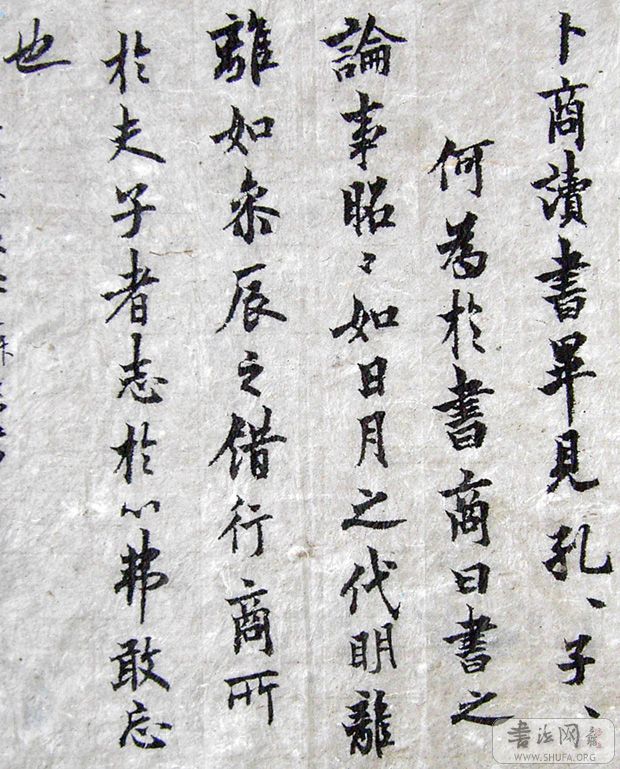 卜商讀書畢見孔、子、
何為於書商曰書之
論事昭々如日月之代明離
離如參辰之錯行商所
於夫子者志於心弗敢忘
也
書法网
WWW.SHUFA.ORG